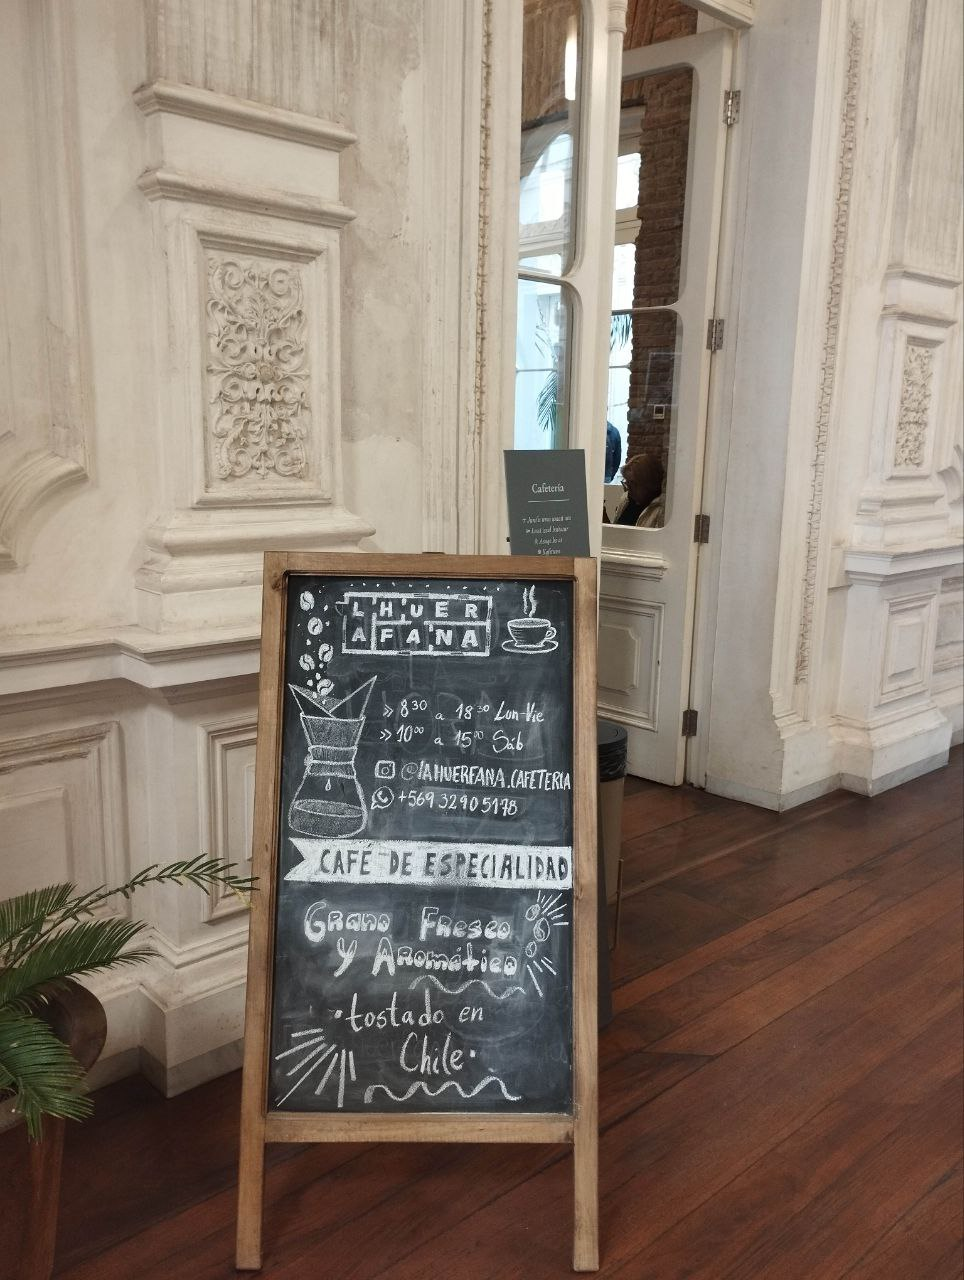 Cafetería
L HUER
A FANA
» 8³⁰ a 18³⁰ Lun-Vie
» 10⁰⁰ a 15⁰⁰ Sáb
@lAHUERFANA.CAFETERIA
+569 32905178
CAFÉ DE ESPECIALIDAD
Grano Fresco
y Aromático
·tostado en
Chile·